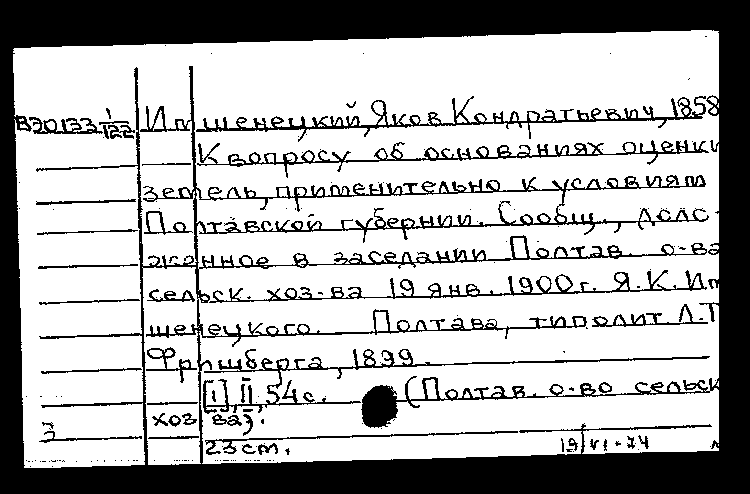 В20133 1/122 Имшенецкий, Яков Кондратьевич, 1858
К вопросу об основаниях оценки
земель, применительно к условиям
Полтавской губернии. Сообщ., доло-
женное в заседании Полтав. о-ва
сельск. хоз-ва 19 янв. 1900 г. Я. К. Им
шенецкого. Полтава, типолит. Л. Т
Фришберга, 1899.
[I], II, 54 с. (Полтав. о-во сельск
хоз-ва).
23 см. 19/VI-74